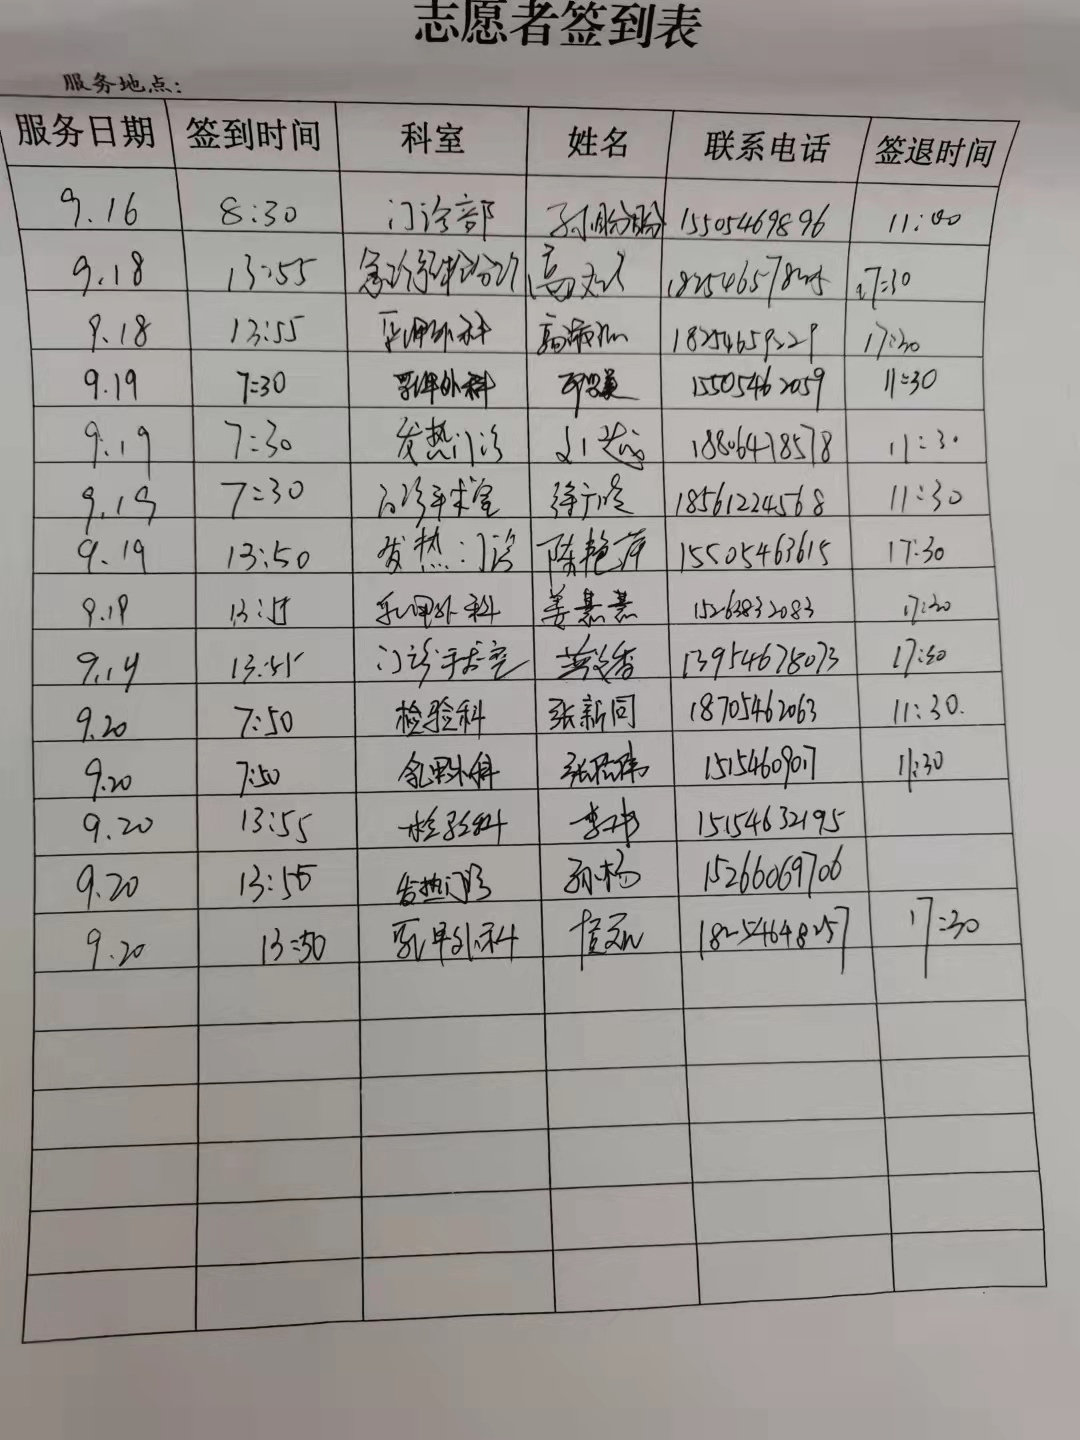 志愿者签到表
服务地点:
服务日期 签到时间 科室 姓名 联系电话 签退时间
9.16 8:30 门诊部 孙盼盼 15505469896 11:00
9.18 13:55 17:30
9.18 13:55 乳甲外科 18254659229 17:30
9.19 7:30 乳甲外科 15505462059 11:30
9.19 7:30 发热门诊 18806478578 11:30
9.19 7:30 门诊手术室 18561224568 11:30
9.19 13:50 发热门诊 陈艳萍 15505463615 17:30
9.19 乳甲外科 姜慧慧 15263832083 17:30
9.19 13:55 门诊手术室 13954678073 17:30
9.20 7:50 检验科 张新同 18705462063 11:30.
9.20 7:50 乳甲外科 11:30
9.20 13:55 检验科 15154632195
9.20 13:55 发热门诊 孙杨 15266069706
9.20 13:50 乳甲外科 18254648257 17:30